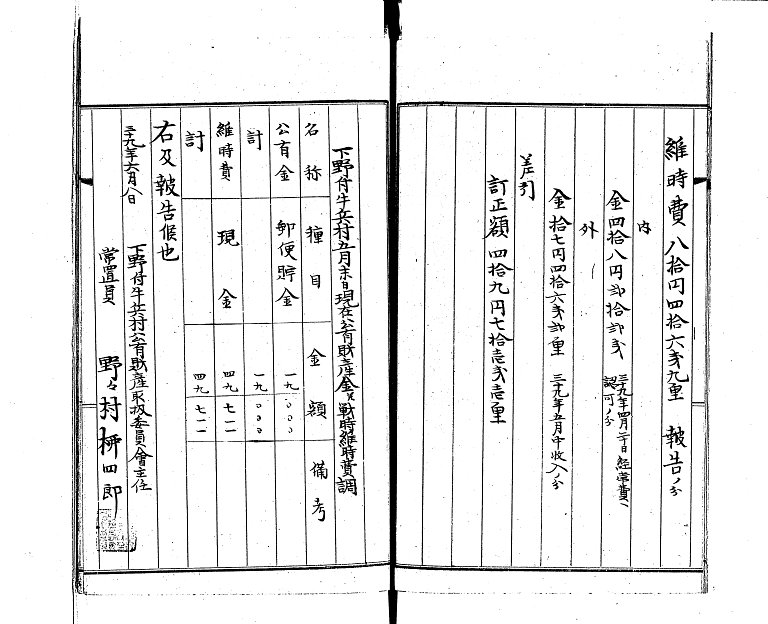 維時費八拾円四拾六戔九厘 報告ノ分
内
金四拾八円弐拾弐戔 三十九年四月二十日経常費ヘ認可ノ分
外ニ
金拾七円四拾六戔弐厘 三十九年五月中收入ノ分
差引
訂正額四拾九円七拾壱戔壱厘
下野付牛兵村五月末日現在公有財産金及戦時維時費調
名称 種目 金額 備考
公有金 郵便貯金 一九〇〇〇
計 一九〇〇〇
維時費 現金 四九七一一
計 四九七一一
右及報告候也
三十九年六月八日
下野付牛兵村公有財産取扱委員會主任
常置員 野々村柳四郎